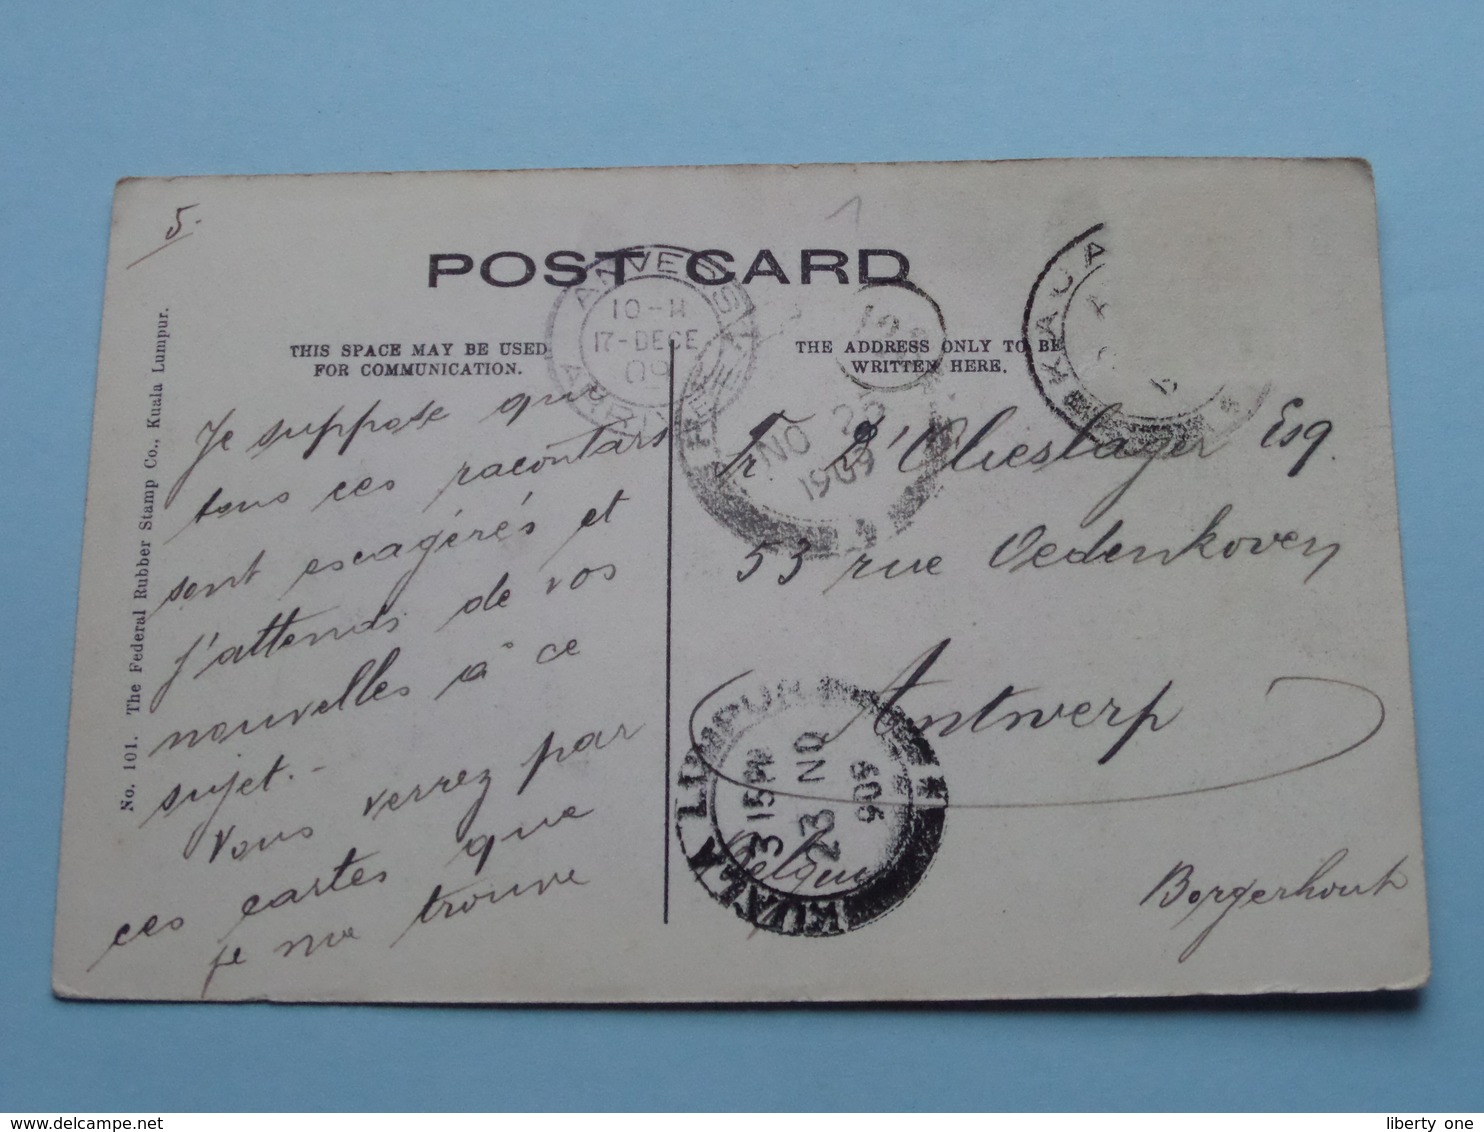 5.
1
POST CARD
THIS SPACE MAY BE USED
FOR COMMUNICATION.
THE ADDRESS ONLY TO BE
WRITTEN HERE.
No. 101. The Federal Rubber Stamp Co., Kuala Lumpur.
Je suppose que
tous ces racontars
sont escagérés et
j'attends de vos
nouvelles à ce
sujet.-
Vous verrez par
ces cartes que
je me trouve
Fr D'Olieslager Esq.
53 rue Oedenkoven
Antwerp
Belgium
Borgerhout
ANVERS
10-11
17-DECE
09
NO 22
1909
KUALA LUMPUR
3 15 PM
23 NO
909
KUA
liberty one